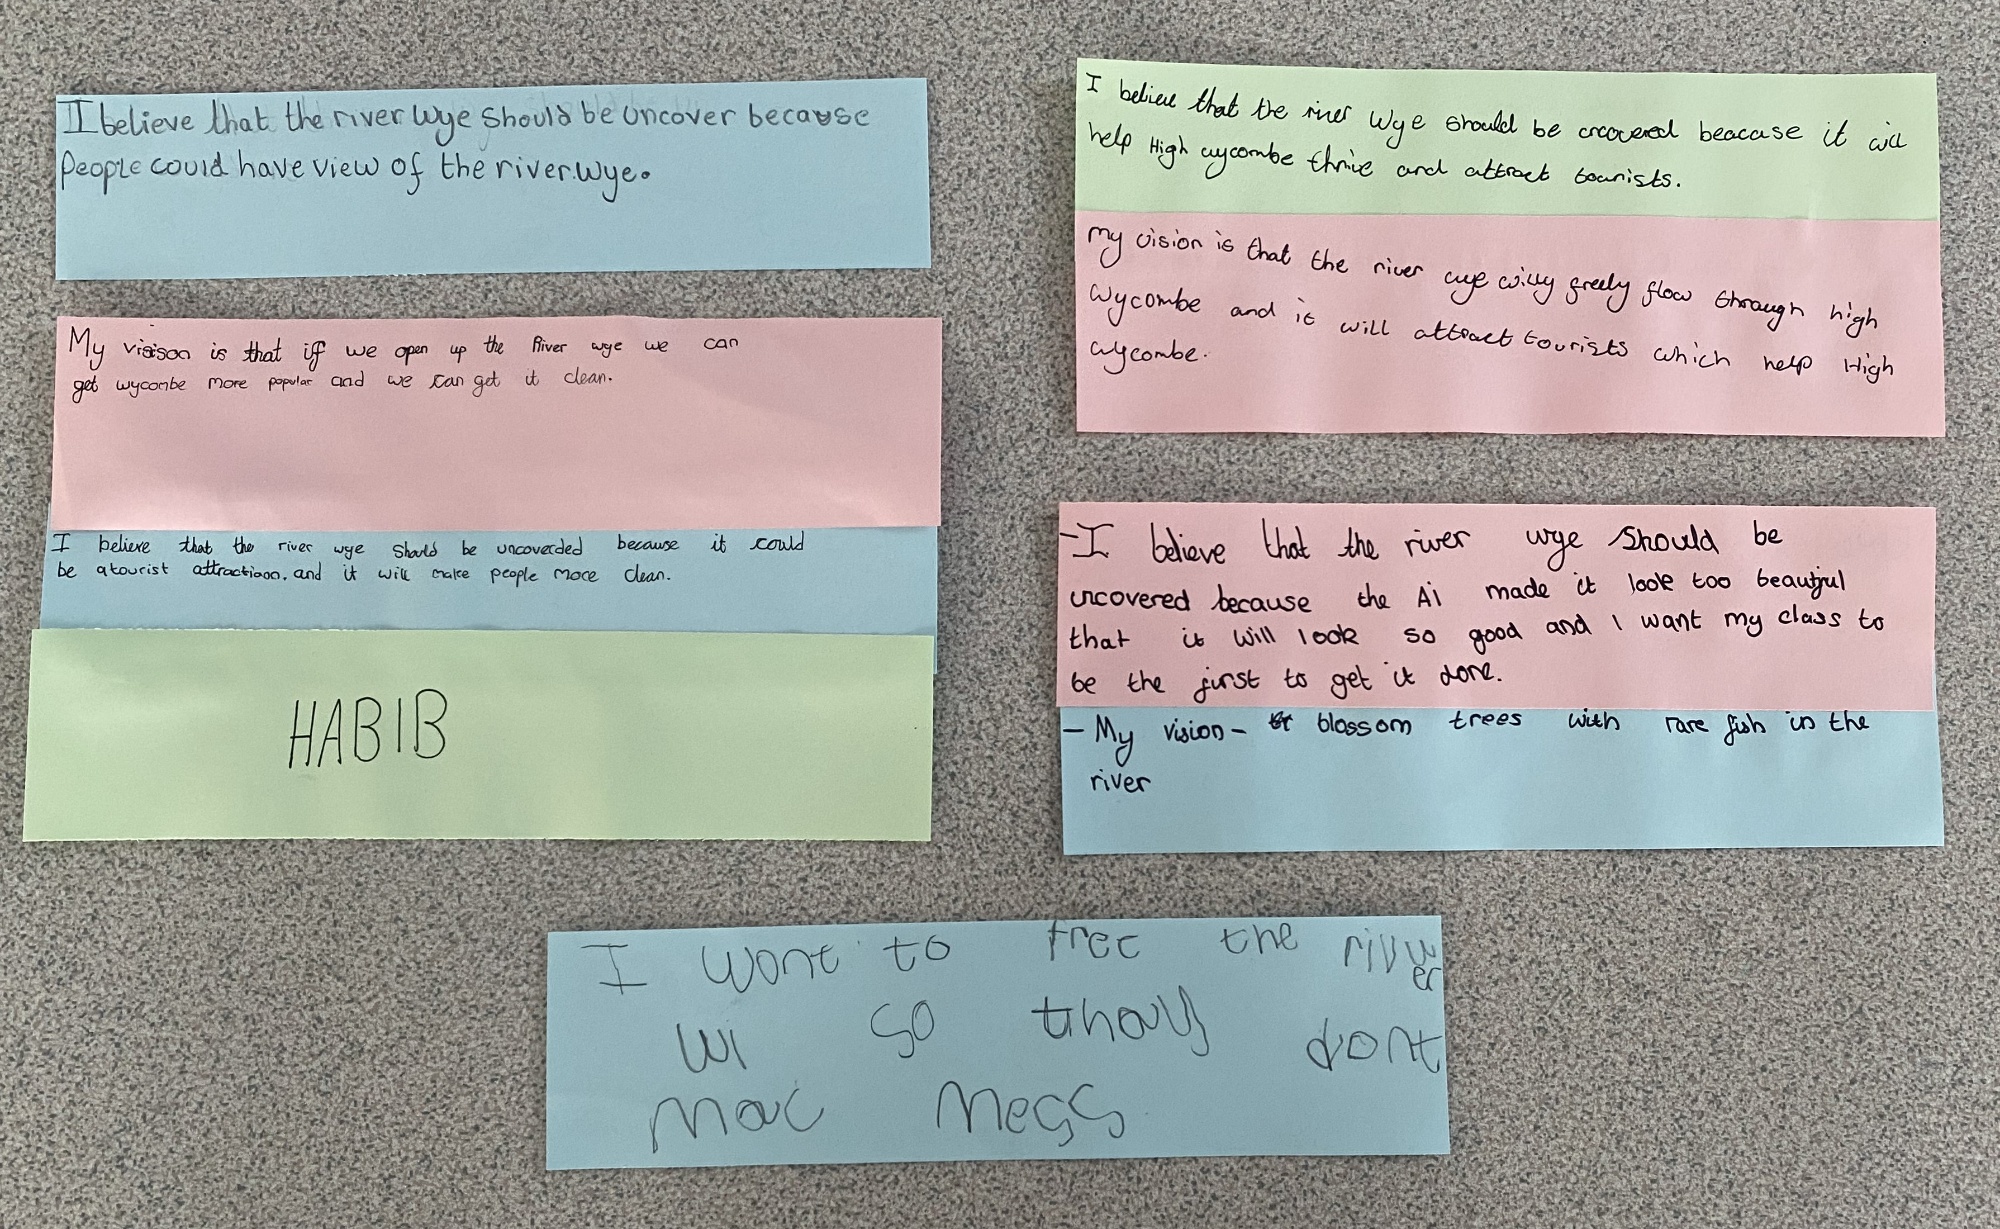 I believe that the river Wye should be uncover because
People could have view of the river Wye.
My visison is that iff we open up the River wye we can
get wycombe more popular and we can get it clean.
I believe that the river wye should be uncoverded because it could
be a tourist attractioon. and it will make people more clean.
HABIB
I believe that the river Wye should be uncovered beacase it will
help High wycombe thrive and attract tourists.
My vision is that the river wye willy freely flow through high
Wycombe and it will attract tourists which help High
wycombe.
-I believe that the river wye should be
uncovered because the Ai made it look too beautiful
that it will look so good and I want my class to
be the first to get it done.
- My vision - blossom trees with rare fish in the
river
I wont to free the river
wi so thay dont
mac mess